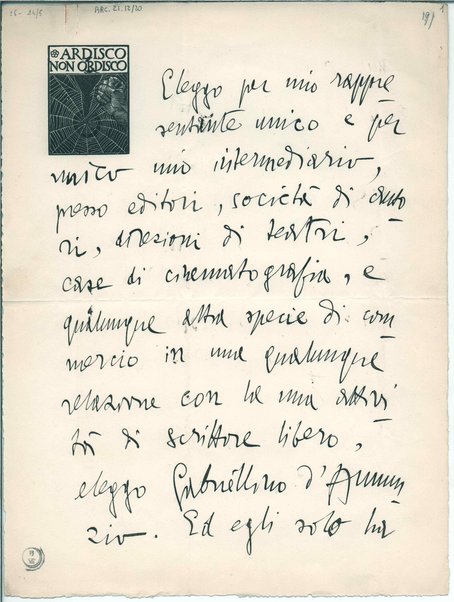 16-24/5
ARC. 21.12/20
191
1
ARDISCO
NON ORDISCO
Eleggo per mio rappre
sentante unico e per
unico mio intermediario,
presso editori, società di auto
ri, direzioni di teatri,
case di cinematografia, e
qualunque altra specie di com
mercio in una qualunque
relazione con la mia attivi
tà di scrittore libero,
eleggo Gabriellino d'Annun
zio. Ed egli solo ha